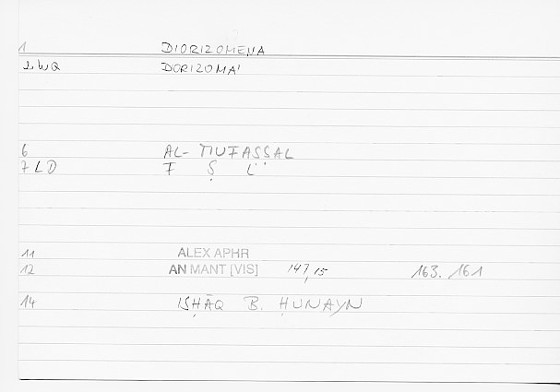 1 DIORIZOMENA
2 WQ DORIZOMAI
6 AL-MUFAṢṢAL
7 LD F Ṣ L
11 ALEX APHR
12 AN MANT [VIS] 147,15 163. 161
14 ISḤĀQ B. ḤUNAYN